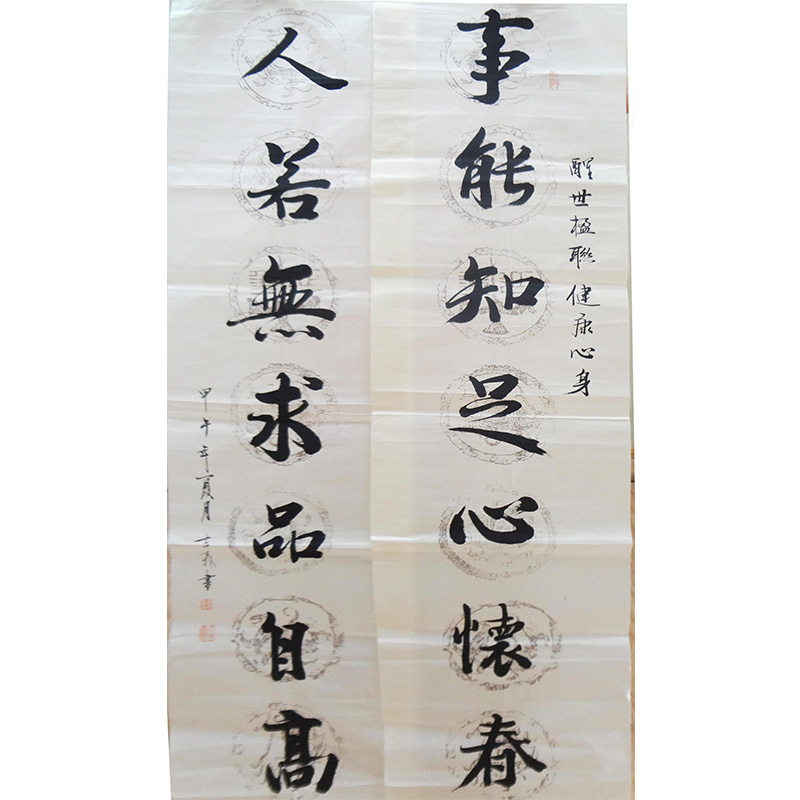 事能知足心懷春
醒世楹聯 健康心身
人若無求品自高
甲午年夏月
書